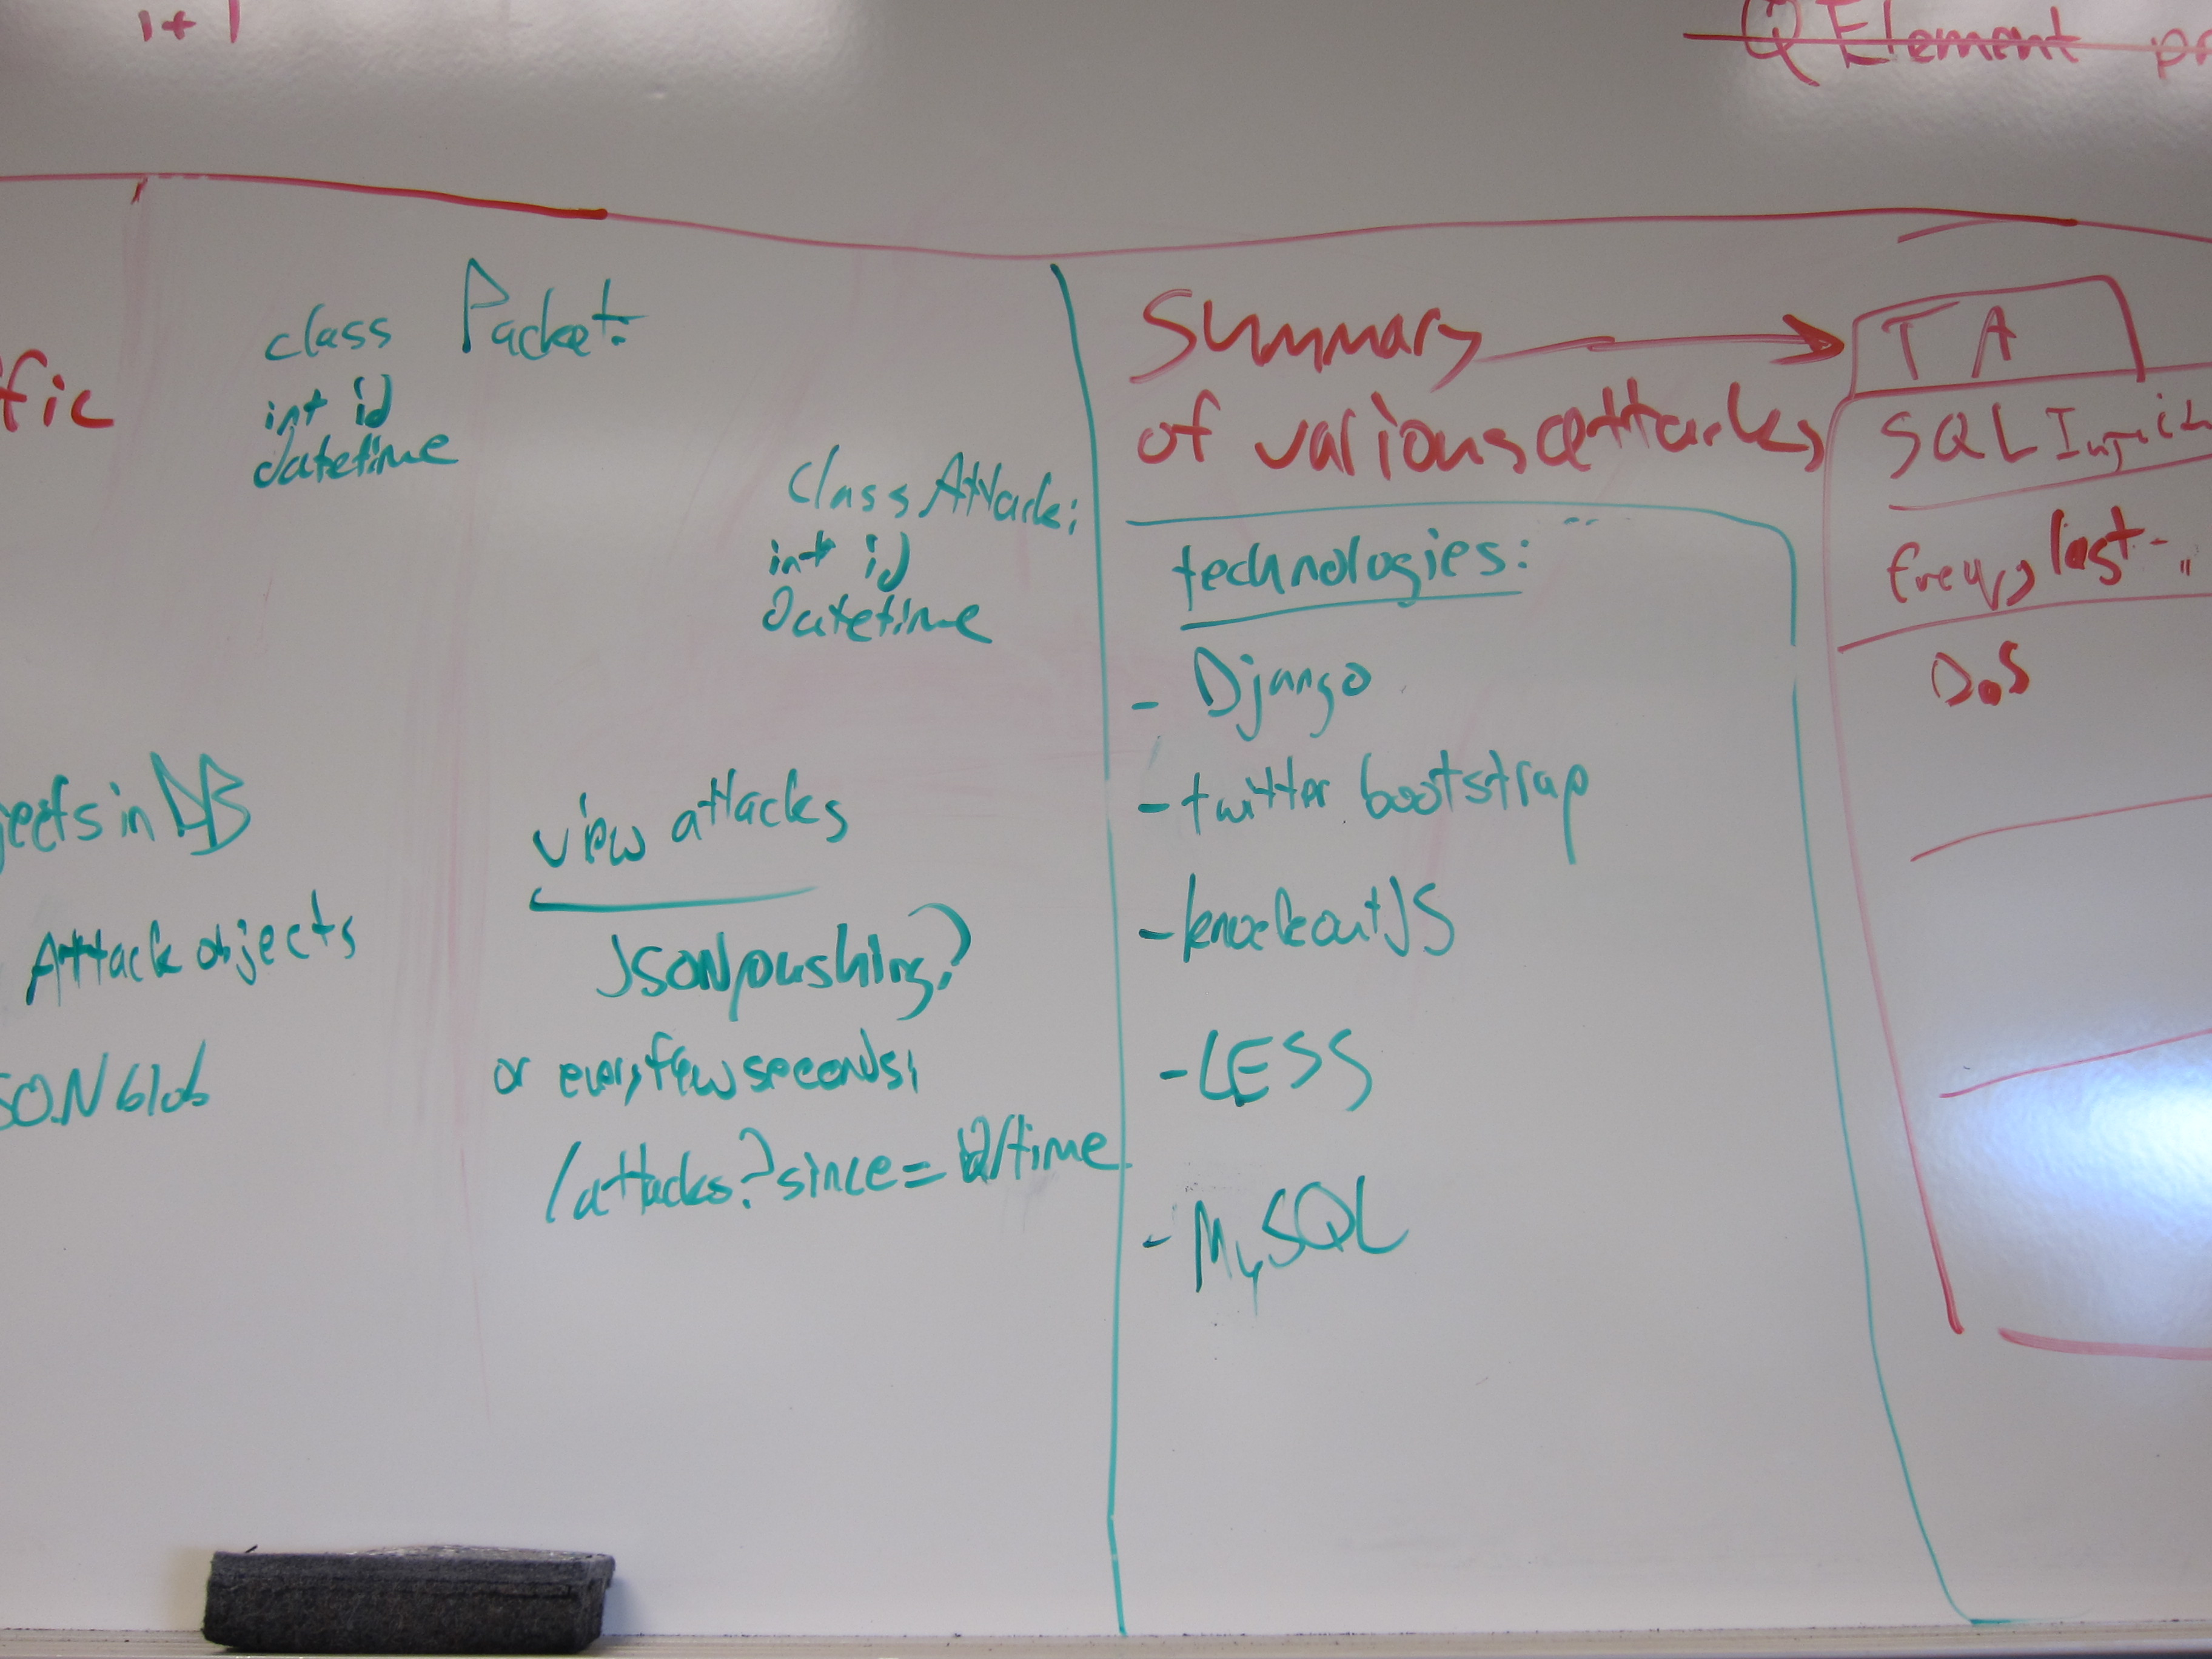 1+1
Q Element pr
fic
class Packet:
int id
datetime
class Attack:
int id
Datetime
jects in DB
Attack objects
SON blob
view attacks
JSON pushing?
or every few seconds:
/attacks?since= /time
Summary
of various attacks
technologies:
- Django
- twitter bootstrap
- knockoutJS
- LESS
- MySQL
T A
SQL
last
DoS